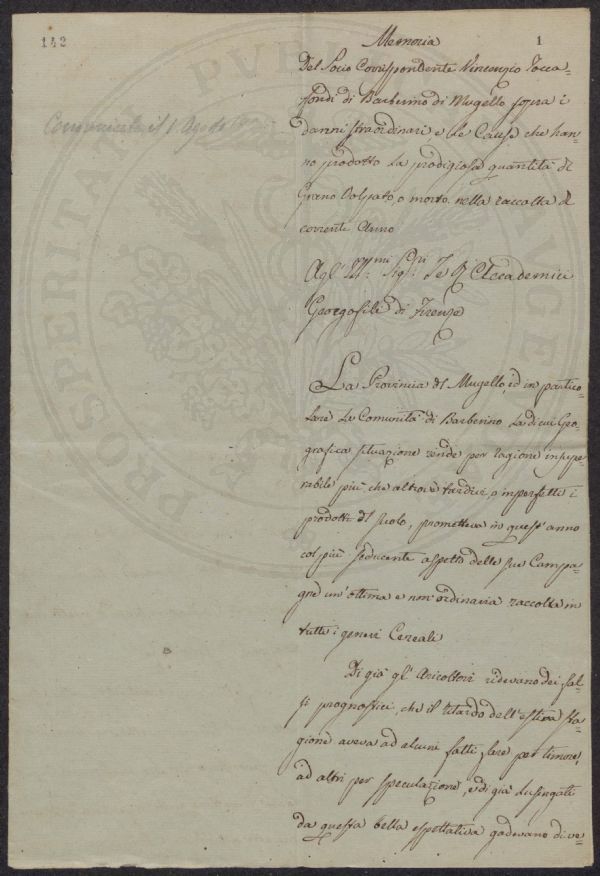 142
1
Comunicata il 1 Agosto
Memoria
Del Socio Corrispondente Vincenzio Tocca=
fondi di Barberino di Mugello sopra i
danni straordinari e le Cause che han=
no prodotto la prodigiosa quantità di
Grano Volpato, o morto nella raccolta del
corrente Anno
Agl' Ill:mi Sig:ri Accademici
Georgofili di Firenze
La Provincia del Mugello, ed in partico=
lare la Comunità di Barberino la di cui Geo=
grafica situazione rende per ragione insupe=
rabile più che altrove tardivi, o imperfetti i
prodotti del suolo, prometteva in quest'anno
col più seducente aspetto delle sue Campa=
gne un'ottima e non ordinaria raccolta in
tutti i generi Cereali
Di già gl' Agricoltori ridevano dei fal=
si prognostici, che il ritardo dell'estiva sta=
gione aveva ad alcuni fatti fare per timore,
ad altri per speculazione, e di già lusingati
da questa bella espettativa godevano di ve=
PROSPERITATI PVBLICAE AVGENDAE